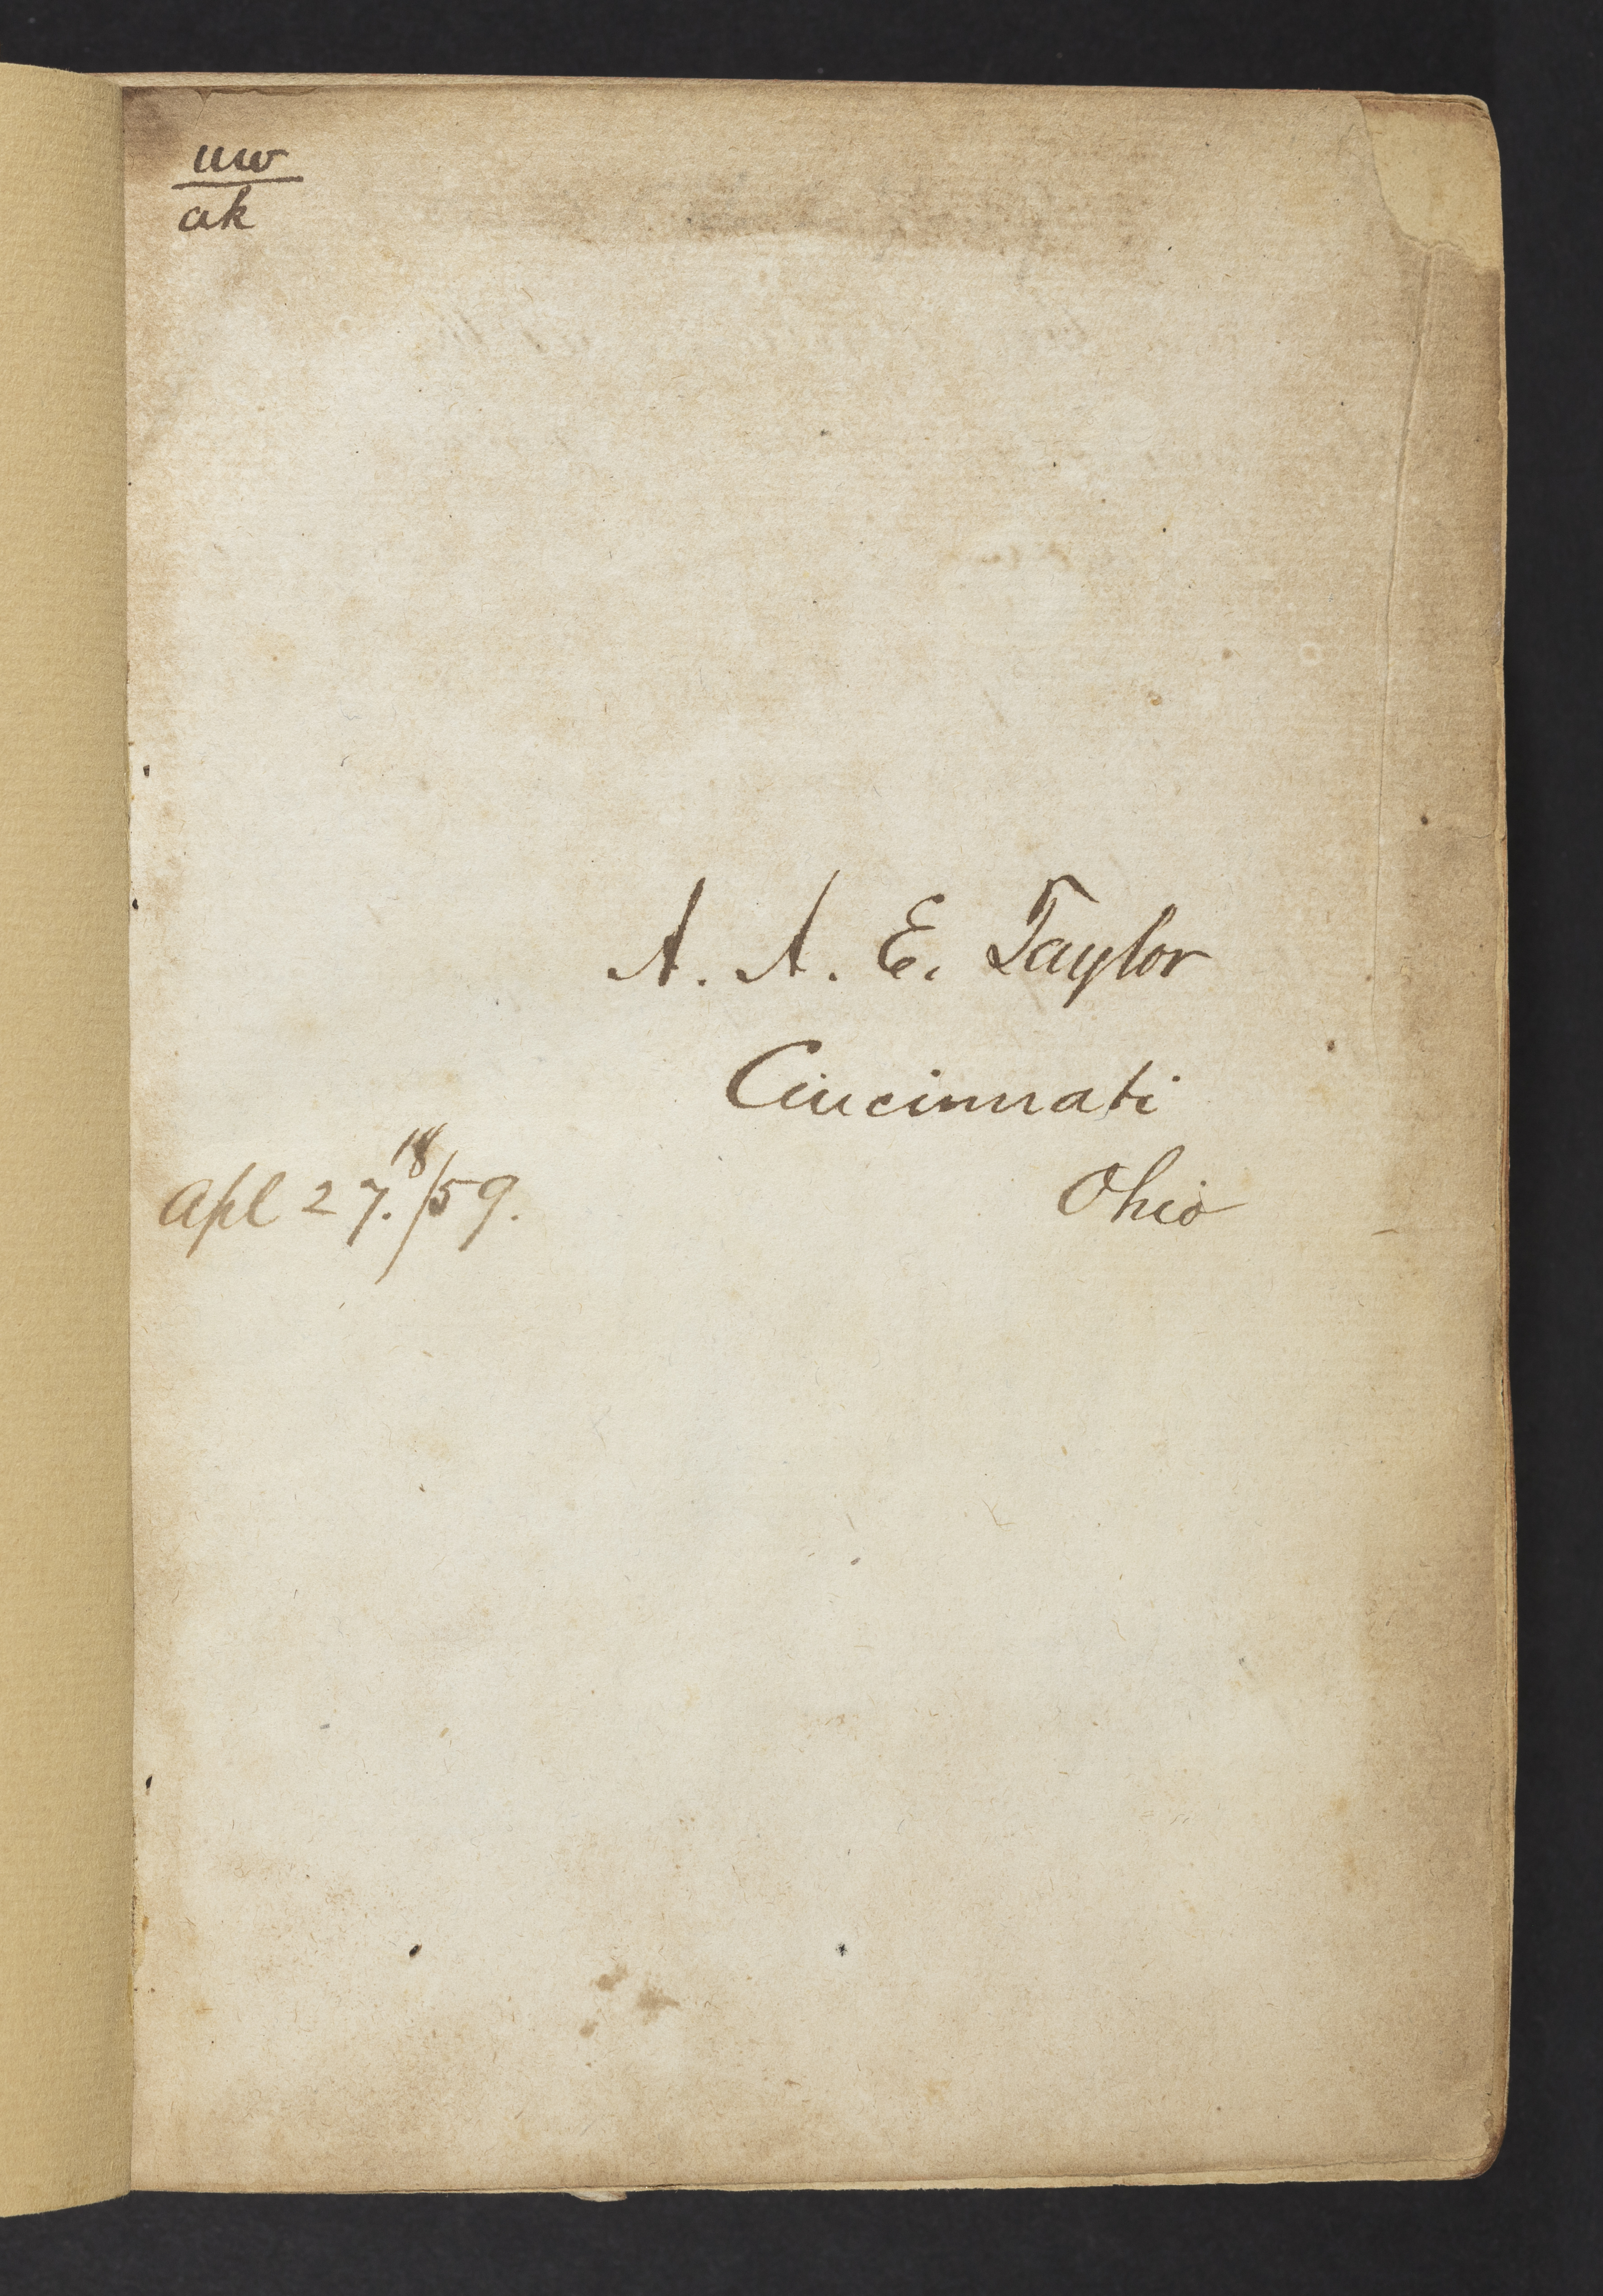 uw
ak
A. A. E. Taylor
Cincinnati
Apl 27. 18/59.
Ohio